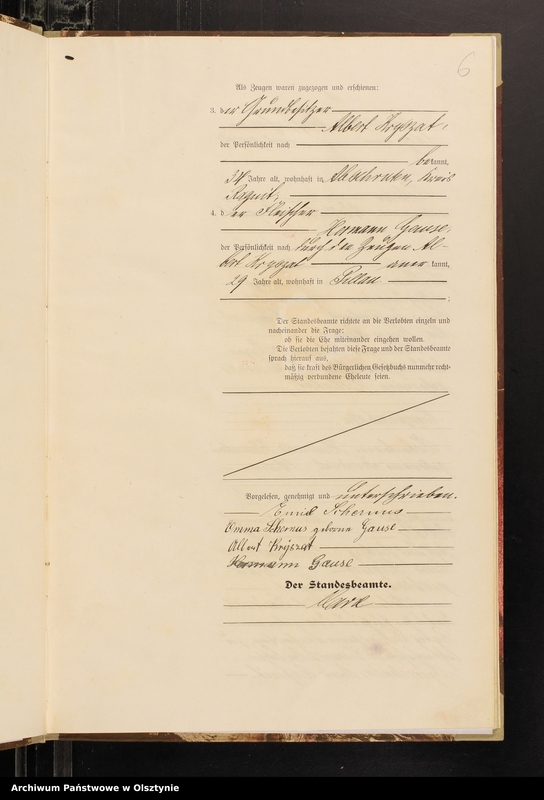 6
Als Zeugen waren zugezogen und erschienen:
3. der Grundbesitzer
Albert Kryszat,
der Persönlichkeit nach
bekannt,
34 Jahre alt, wohnhaft in Abschruten, Kreis
Ragnit,
4. der Fleischer
Hermann Gause,
der Persönlichkeit nach durch den Zeugen Al-
bert Kryszat anerkannt,
29 Jahre alt, wohnhaft in Pillau
;
Der Standesbeamte richtete an die Verlobten einzeln und
nacheinander die Frage:
ob sie die Ehe miteinander eingehen wollen.
Die Verlobten bejahten diese Frage und der Standesbeamte
sprach hierauf aus,
daß sie kraft des Bürgerlichen Gesetzbuchs nunmehr recht-
mäßig verbundene Eheleute seien.
Vorgelesen, genehmigt und unterschrieben.
Emil Schernus
Emma Schernus geborne Gause
Albert Kryszat
Hermann Gause
Der Standesbeamte.
Archiwum Państwowe w Olsztynie